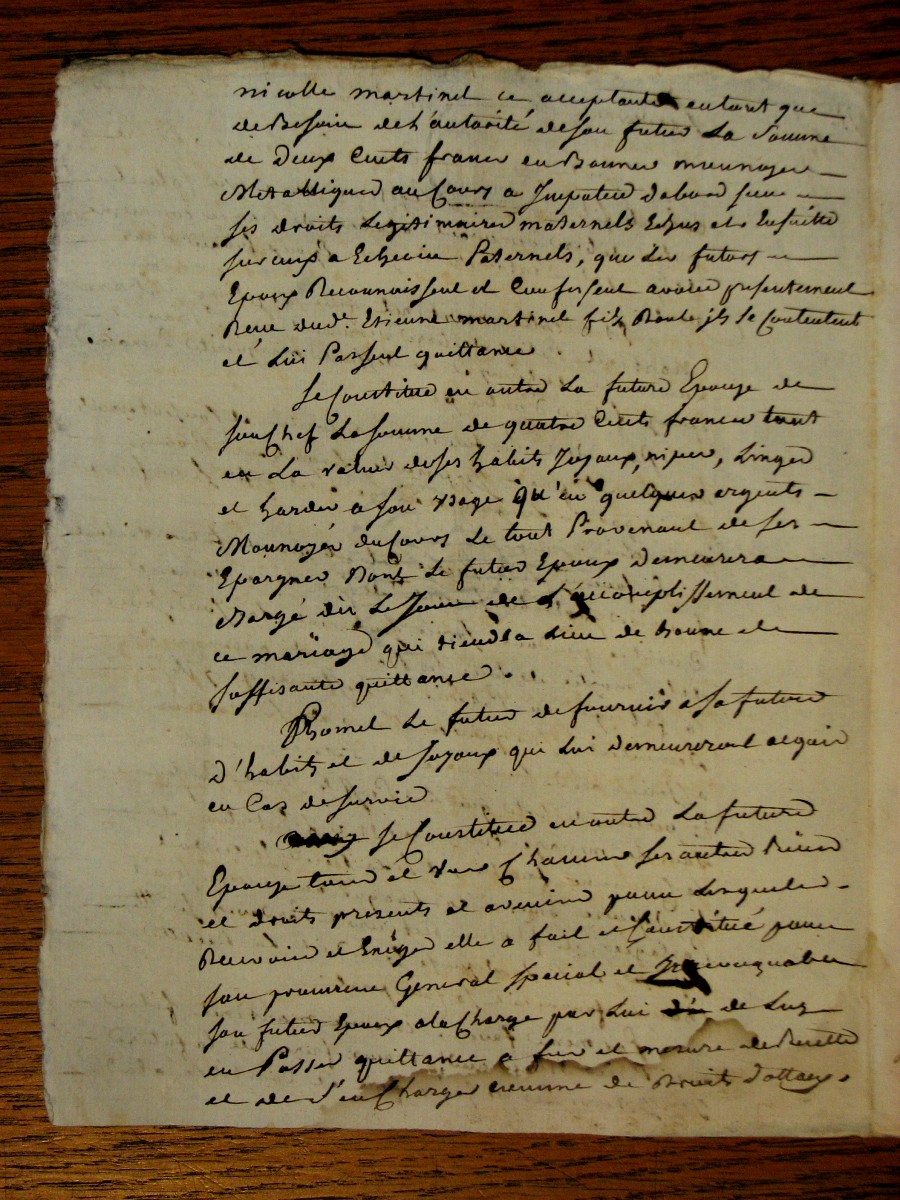 nicolle martinel ce acceptante autant que
de Besoin de h'autorité de son futur La Somme
de Deux Cents francs en Bonnes monnoyes
Metalliques au Cours a Imputer dabord sur
ses droits Legitimaires maternels Echus et Ensuitte
sur ceux a Echeoir Paternels, que Les futurs
Epoux Reconnoissent et Confessent avoir presentement
Reçu dud.t Etienne martinel fils Dont ils se Contentent
et Lui Passent quittance
Se Constitue en outre La future Epouze de
son Chef La somme de quatre Cents francs tant
en La valeur de ses habits Joyaux, nipes, Linges
et hardes a son usage qu'en quelques argents
Monnoyés du Cours Le tout Provenant de ses
Epargnes Dont Le futur Epoux Demeurera
Chargé dès Le Jour de L'accomplissement de
ce mariage qui tiendra Lieu de bonne et
suffisante quittance.
Promet Le futur de fournir a sa future
D'habits et de Joyaux qui Lui Demeureront acquis
en Cas de survie
se Constitue en outre La future
Epouze tous et un Chacuns ses autres Biens
et Droits presents et avenirs pour Lesquels
Recevoir et Exiger elle a fait et Constitué pour
son procureur General special et Irrevocquable
son futur Epoux ala Charge par Lui de Les
en Passer quittance a fur et mesure de Recette
et de s'en Charger comme de Droits Dottaux.